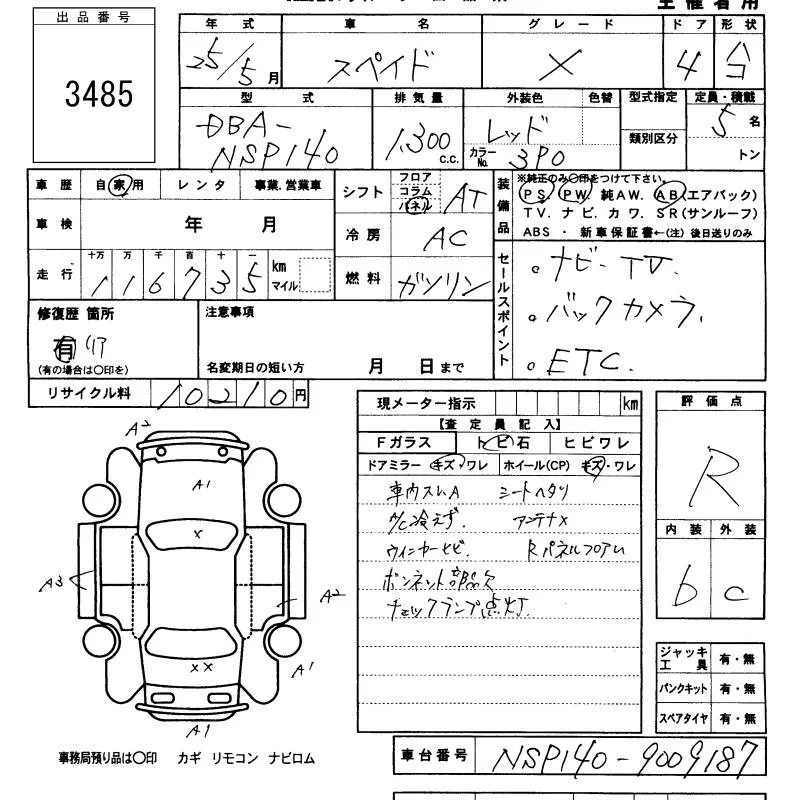 主催者用
出品番号
3485
年式 車名 グレード ドア 形状
25/5月 スペイド X 4 5
型式 排気量 外装色 色替 型式指定 定員・積載
DBA-NSP140 1,300 C.C. レッド カラーNo. 3P0 類別区分 5名 トン
車歴 自家用 レンタ 事業.営業車
車検 年 月
走行 十万 万 千 百 十 一
116735 km マイル
シフト フロア コラム パネル AT
冷房 AC
燃料 ガソリン
装備品
※純正のみ○印をつけて下さい。
PS. PW. 純AW. AB(エアバック)
TV. ナビ. カワ. SR(サンルーフ)
ABS ・ 新車保証書←(注) 後日送りのみ
セールスポイント
。ナビーTV.
。バックカメラ.
。ETC.
修復歴 箇所
有 リア
(有の場合は○印を)
注意事項
名変期日の短い方 月 日まで
リサイクル料 10210円
現メーター指示 km
【査定員記入】
Fガラス トビ石 ヒビワレ
ドアミラー キズ・ワレ ホイール(CP) キズ・ワレ
車内スレA シートヘタリ
A/C冷えず. アンテナX
ウィンカーヒビ. RパネルフロアU
ボンネット部品欠
チェックランプ点灯.
評価点
R
内装 外装
b c
ジャッキ工具 有・無
パンクキット 有・無
スペアタイヤ 有・無
A2
A1
X
A3
A2
XX
A1
A1
事務局預り品は○印 カギ リモコン ナビロム
車台番号 NSP140-9009187